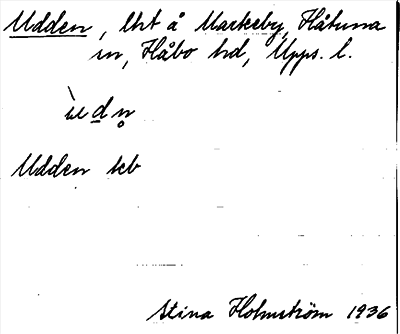 Udden, lht å Markeby, Håtuna
sn, Håbo hd, Upps. l.
ùdn̥
Udden kb
Stina Holmström 1936